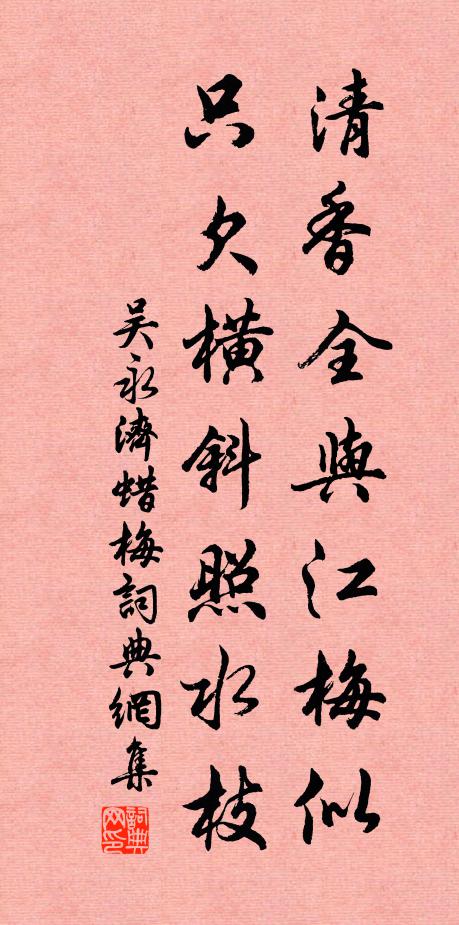 清香全與江梅似
只欠橫斜照水枝
吴永濟蜡梅詞典網集
詞典网印